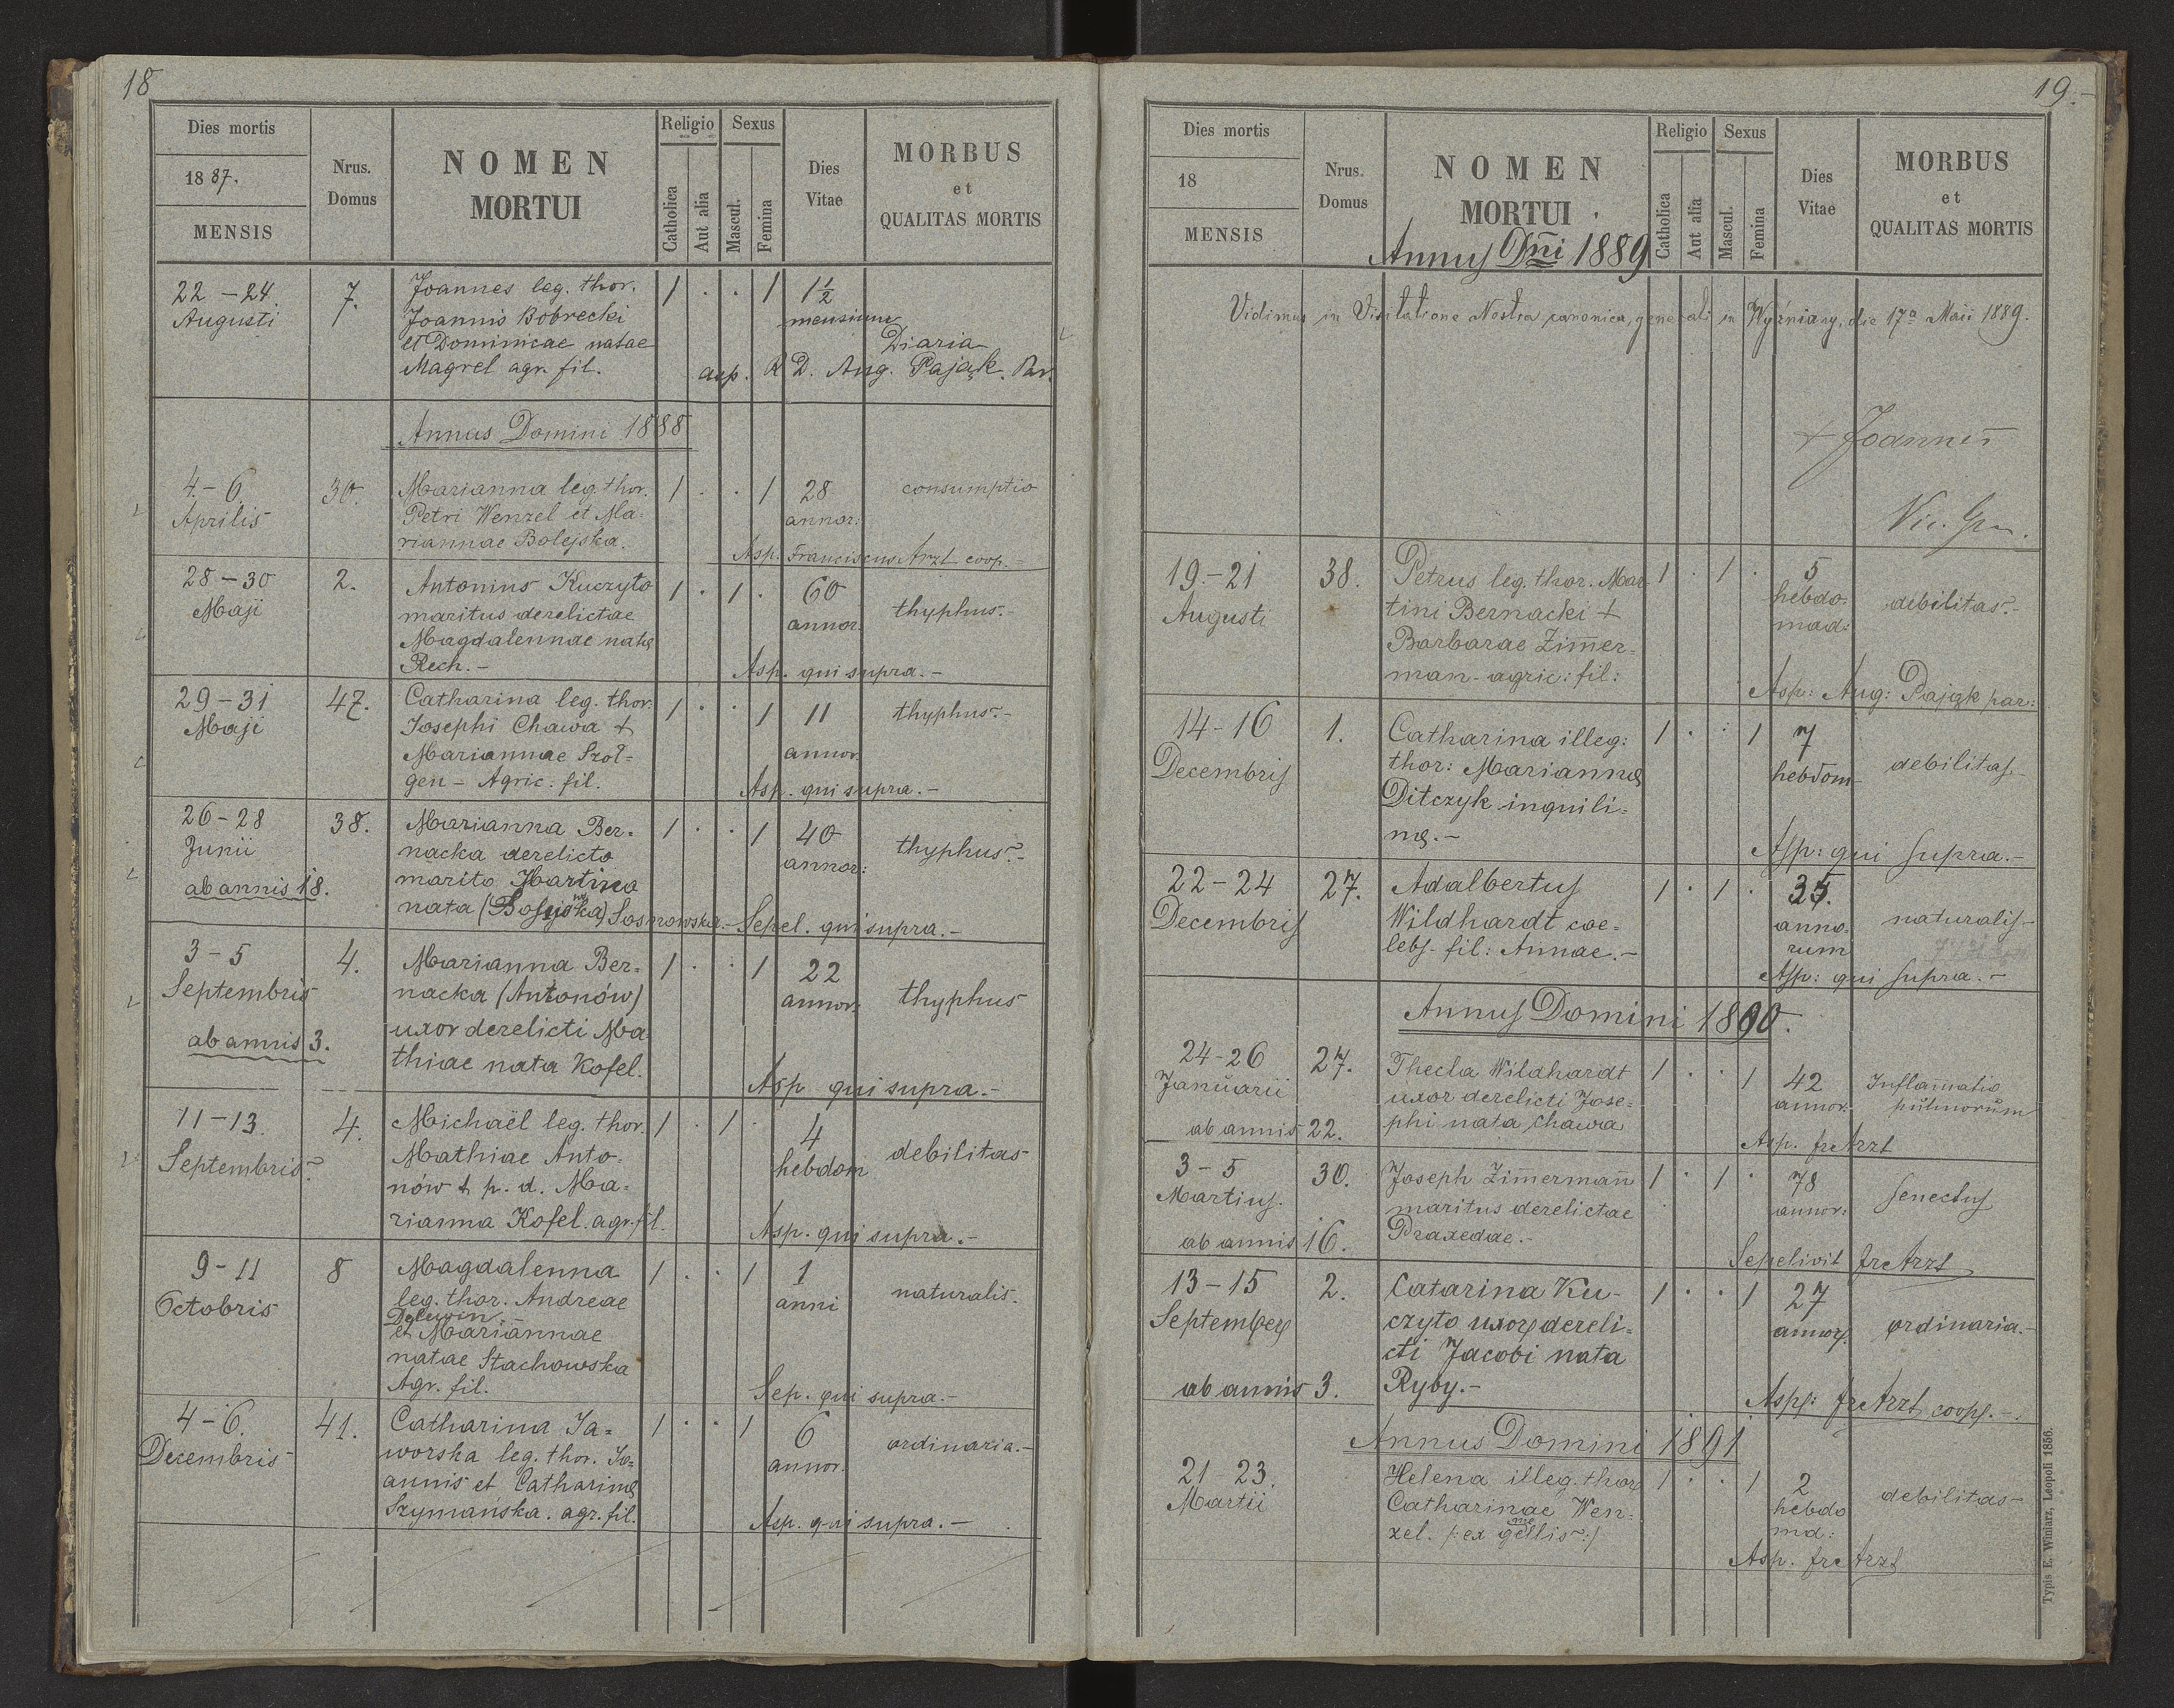 18
Dies mortis
1887.
MENSIS
Nrus.
Domus
NOMEN
MORTUI
Religio
Catholica
Aut alia
Sexus
Mascul.
Femina
Dies
Vitae
MORBUS
et
QUALITAS MORTIS
22-24. 7. Joannes leg. thor. 1 . . 1 1½
Augusti Joannis Bobrecki mensium
et Dominicae natae Diaria
Magrel agr. fil. asp. R D. Aug. Pająk. Par.
Annus Domini 1888
4.-6 30. Marianna leg. thor. 1 . . 1 28 consumptio
Aprilis Petri Wenzel et Ma- annor:
riannae Bolejska.
Asp. Franciscus Arzt coop.-
28-30 2. Antonius Kuczyto 1 . 1 . 60
Maji maritus derelictae annor. thyphus.-
Magdalennae natae
Rech.- Asp. qui supra.-
29-31 47. Catharina leg. thor. 1 . . 1 11 thyphus.-
Maji Josephi Chawa +
Mariannae Szol= annor.
gen - Agric: fil. Asp. qui supra.-
26-28 38. Marianna Ber- 1 . . 1 40 thyphus.-
Junii nacka derelicto annor:
ab annis 18. marito Martino
nata Sosnowska.- Sepel. qui supra.-
3-5 4. Marianna Ber- 1 . . 1 22
Septembris nacka (Antonów) annor: thyphus
ab annis 3. uxor derelicti Ma-
thiae nata Kofel.
Asp qui supra.-
11-13. 4. Michaël leg. thor. 1 . 1 . 4 debilitas
Septembris Mathiae Anto- hebdom
nów + p. d. Ma-
rianna Kofel. agr. fil.
Asp. qui supra.-
9-11 8 Magdalenna 1 . . 1 1 naturalis.
Octobris leg. thor. Andreae anni
et Mariannae
natae Stachowska
Agr. fil. Sep. qui supra.-
4-6. 41. Catharina Ja= 1 . . 1 6 ordinaria.-
Decembris worska leg. thor. Jo= annor.
annis et Catharinae
Szymańska. agr. fil. Asp. qui supra.-
19.-
Dies mortis
18
MENSIS
Nrus.
Domus
NOMEN
MORTUI
Religio
Catholica
Aut alia
Sexus
Mascul.
Femina
Dies
Vitae
MORBUS
et
QUALITAS MORTIS
Annus Dni 1889
Vidimus in Visitatione Nostra canonica, generali in Wyżniany, die 17a Maii 1889.
+ Joannes
Vic. Gen.
19.-21 38. Petrus leg. thor. Mar- 1 . 1 . 5
Augusti tini Bernacki + hebdo- debilitas.-
Barbarae Zimer= mad:
man - agric: fil:
Asp: Aug: Pająk par:
14-16 1. Catharina illeg: 1 . . 1 7
Decembris thor: Mariannae hebdom debilitas.-
Ditczyk inquili=
nae.-
Asp: qui supra.-
22-24 27. Adalbertus 1 . 1 . 35.
Decembris Wildhardt coe= anno- naturalis-
lebs- fil: Annae.- rum
Asp: qui supra.-
Annus Domini 1890.
24-26 27. Thecla Wildhardt 1 . . 1 42 Inflamatio
Januarii uxor derelicti Jose= annor. pulmorum
ab annis 22. phi nata Chawa
Asp. fr Arzt
3-5 30. Joseph Zimerman 1 . 1 . 78 senectus
Martius. maritus derelictae annor:
ab annis 16. Praxedae.-
Sepelivit fr Arzt
13-15 2. Catarina Ku- 1 . . 1 27
September czyto uxor dereli= annor. ordinaria.-
cti Jacobi nata
ab annis 3. Ryby.- Asp: fr Arzt coop.-.
Annus Domini 1891
21 23. Helena illeg. thor 1 . . 1 2
Martii Catharinae Wen= hebdo debilitas-
zel. /: ex gellis :/ md:
Asp. fr Arzt
Typis E. Winiarz Leopoli 1856.